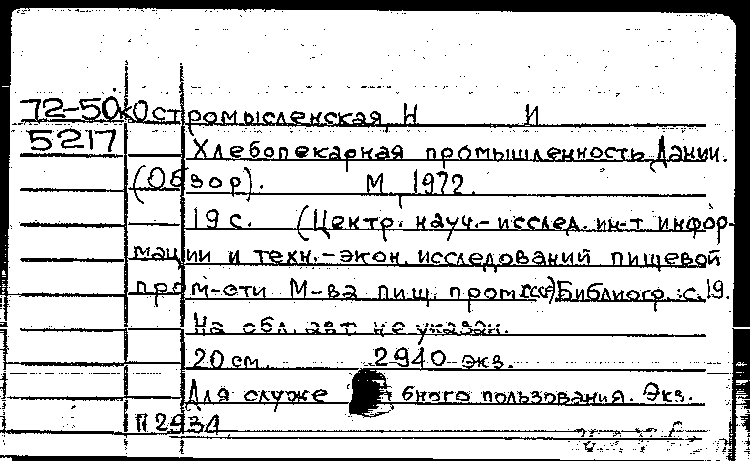 72-50к Остромысленская, Н И
5217
Хлебопекарная промышленность Дании.
(Обзор). М., 1972.
19 с. (Центр. науч.-исслед. ин-т инфор-
мации и техн.-экон. исследований пищевой
пром-сти М-ва пищ. пром СССР) Библиогр.: с. 19.
На обл. авт. не указан.
20 см. 2940 экз.
Для служебного пользования. Экз.
П2934